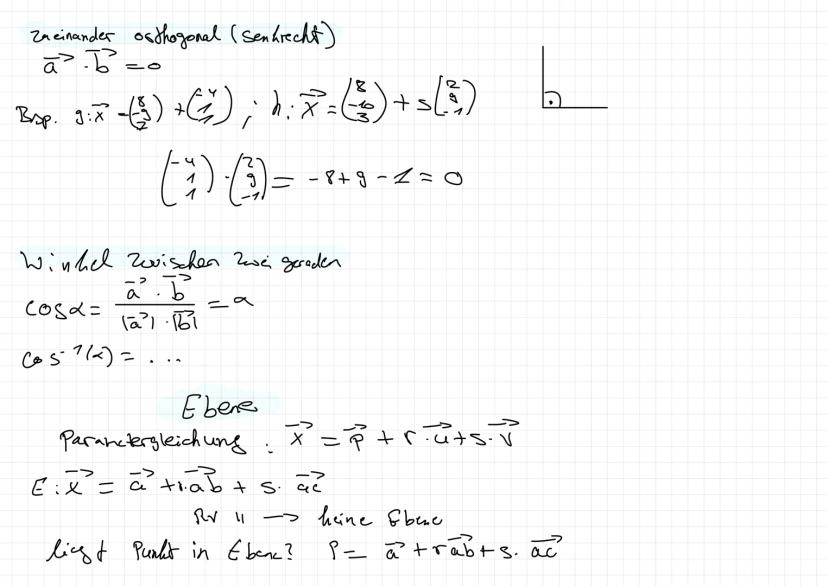 zueinander orthogonal (senkrecht)
a⃗ · b⃗ = 0
Bsp. g: x⃗ = (8 -9 2) + (-4 1 1) ; h: x⃗ = (8 -10 3) + s (2 9 -1)
(-4 1 1) · (2 9 -1) = -8 + 9 - 1 = 0
Winkel zwischen zwei geraden
cos α = a⃗ · b⃗ / |a⃗| · |b⃗| = α
cos⁻¹(α) = ...
Ebene
Parametergleichung : x⃗ = p⃗ + r · u⃗ + s · v⃗
E: x⃗ = a⃗ + r · ab⃗ + s · ac⃗
RV || → keine Ebene
liegt Punkt in Ebene? P = a⃗ + r ab⃗ + s · ac⃗